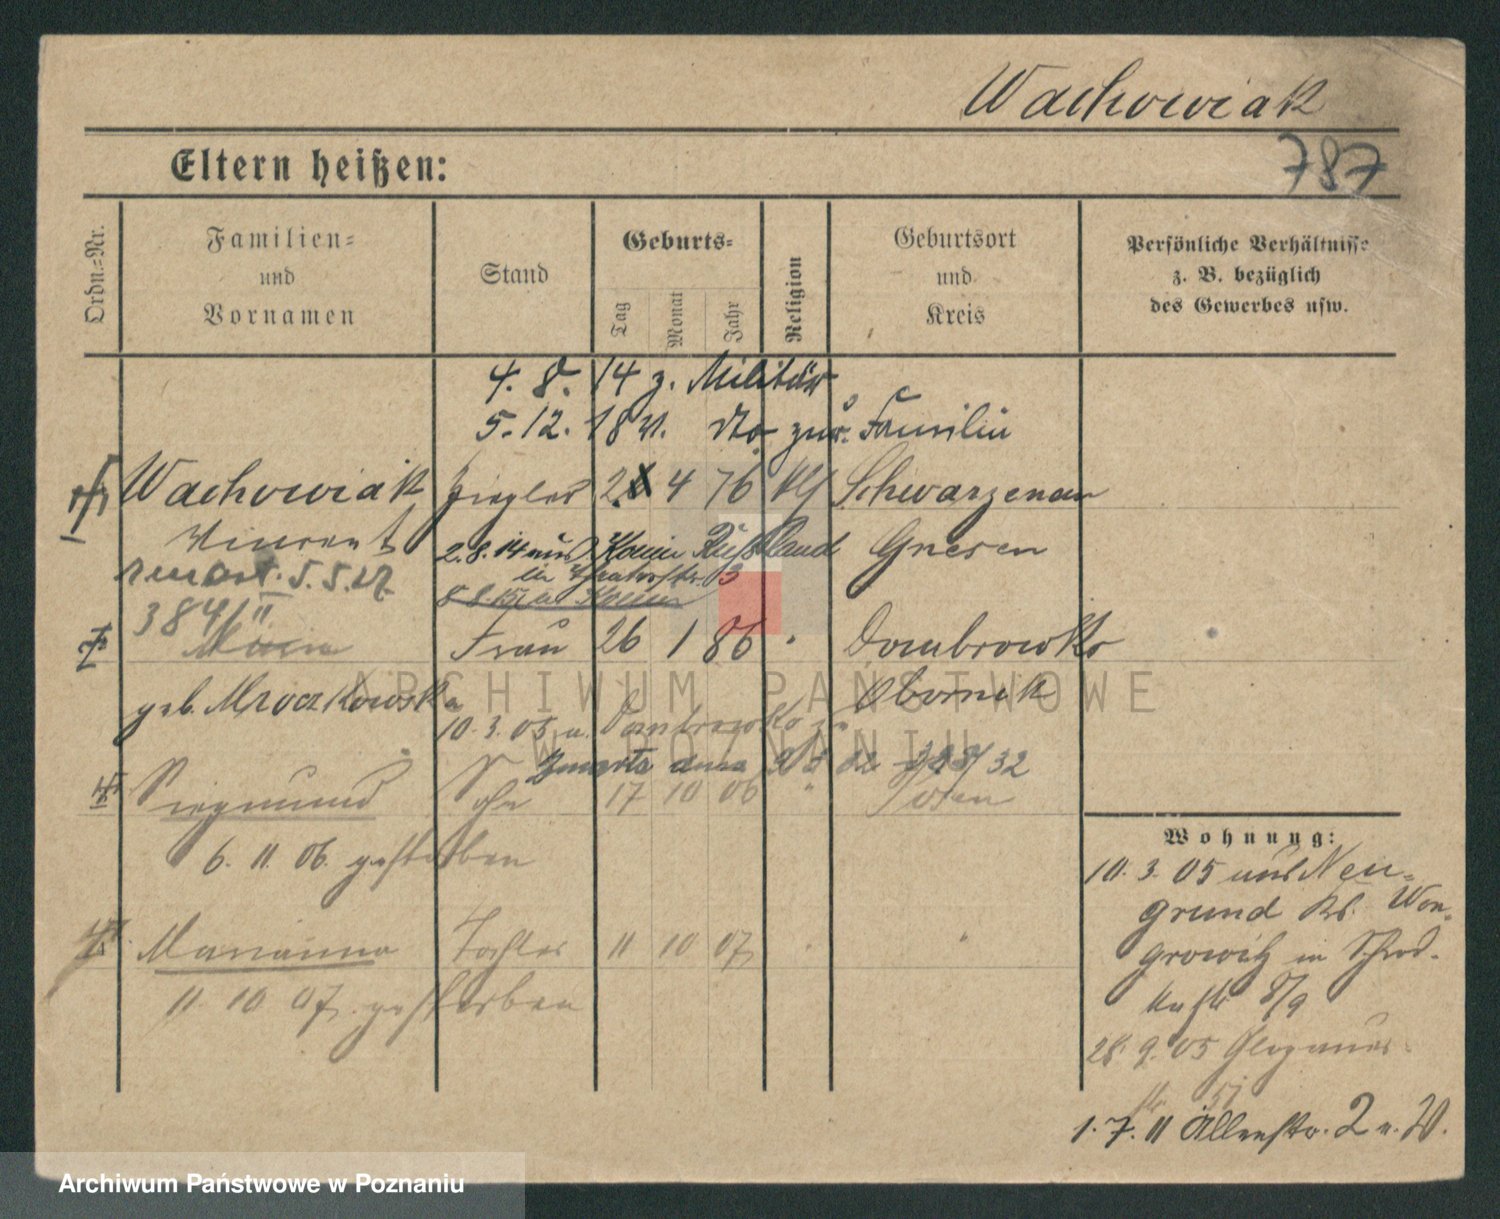 Wachowiak
787
Eltern heißen:
Ordn.-Nr.
Familien-
und
Vornamen
Stand
Geburts-
Tag
Monat
Jahr
Religion
Geburtsort
und
Kreis
Persönliche Verhältnisse
z. B. bezüglich
des Gewerbes usw.
4. 8. 14 z. Militär
5. 12. 18 v. dto zur. Familie
Wachowiak Ziegler 2 4 76 kt Schwarzenau
Vincent 2.8.14 aus Konin Rußland Gnesen
zmarł. 5.5.27.
384/II
8 8. Konin
Maria Frau 26 1 86 " Dombrowko
geb. Mroczkowska Obornik
10. 3. 05 a. Dombrowko
Zmarła dnia 32
Siegmund Sohn 17 10 06 " Posen
6. 11. 06. gestorben
Marianna Tochter 11 10 07 " "
11 10 07. gestorben
Wohnung:
10. 3. 05 aus Neu-
grund Kr. Won-
growitz in Schrod-
kastr 8/9
28. 9. 05 Glogauer-
str. 57
1. 7. 11 Allenstr. 2 u. W.
ARCHIWUM PAŃSTWOWE
W POZNANIU
Archiwum Państwowe w Poznaniu